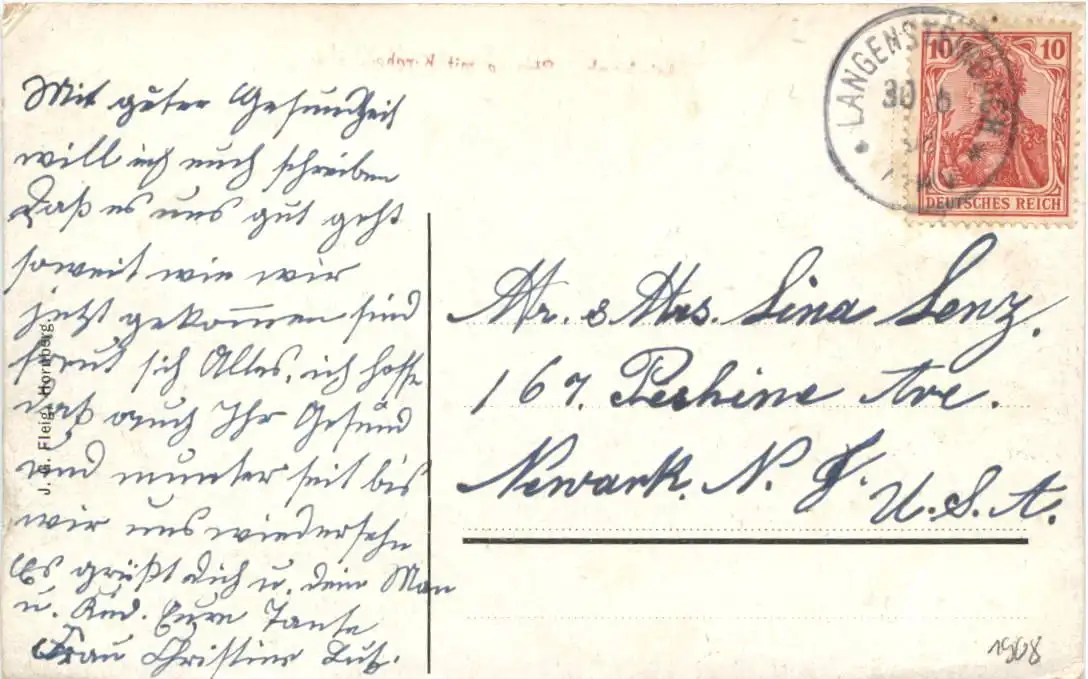 Mit guter Gesundheit
will ich euch schreiben
Daß es uns gut geht
soweit wie wir
jetzt gekommen sind
freut sich Alles, ich hoffe
daß auch Ihr Gesund
und munter seit bis
wir uns wiedersehn
Es grüßt Dich u. dein Man
u. Kind. Eure Tante
Frau Christine Lutz.
J. G. Fleig, Hornberg.
mit Kirche
LANGENSTEINBACH
30 6
10 10
DEUTSCHES REICH
Mr. & Mrs. Lina Lenz.
167. Peshine Ave.
Newark. N. J.
U. S. A.
1908